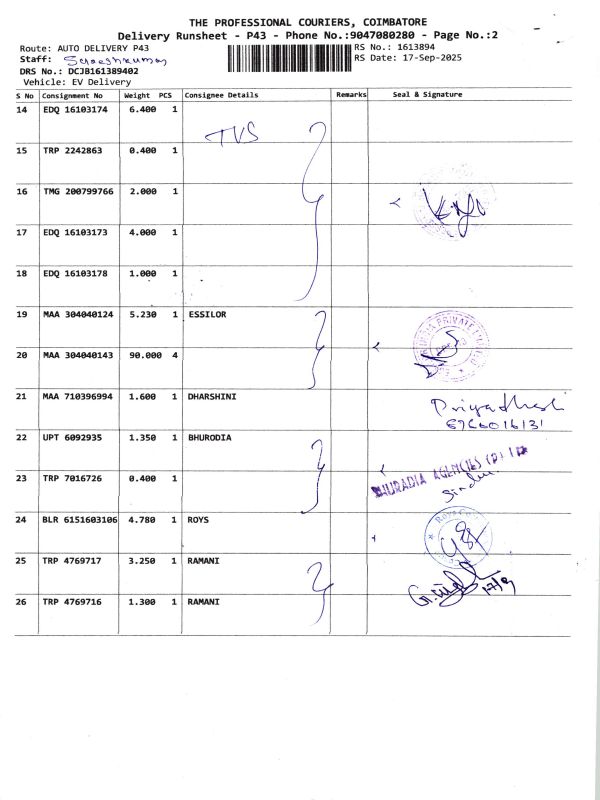 THE PROFESSIONAL COURIERS, COIMBATORE
Delivery Runsheet - P43 - Phone No.:9047080280 - Page No.:2
Route: AUTO DELIVERY P43
RS No.: 1613894
Staff:
RS Date: 17-Sep-2025
DRS No.: DCJB161389402
Vehicle: EV Delivery
S No Consignment No Weight PCS Consignee Details Remarks Seal & Signature
14 EDQ 16103174 6.400 1
TVS
15 TRP 2242863 0.400 1
16 TMG 200799766 2.000 1
17 EDQ 16103173 4.000 1
18 EDQ 16103178 1.000 1
19 MAA 304040124 5.230 1 ESSILOR
20 MAA 304040143 90.000 4
21 MAA 710396994 1.600 1 DHARSHINI
22 UPT 6092935 1.350 1 BHURODIA
23 TRP 7016726 0.400 1
24 BLR 6151603106 4.780 1 ROYS
25 TRP 4769717 3.250 1 RAMANI
17/9
26 TRP 4769716 1.300 1 RAMANI